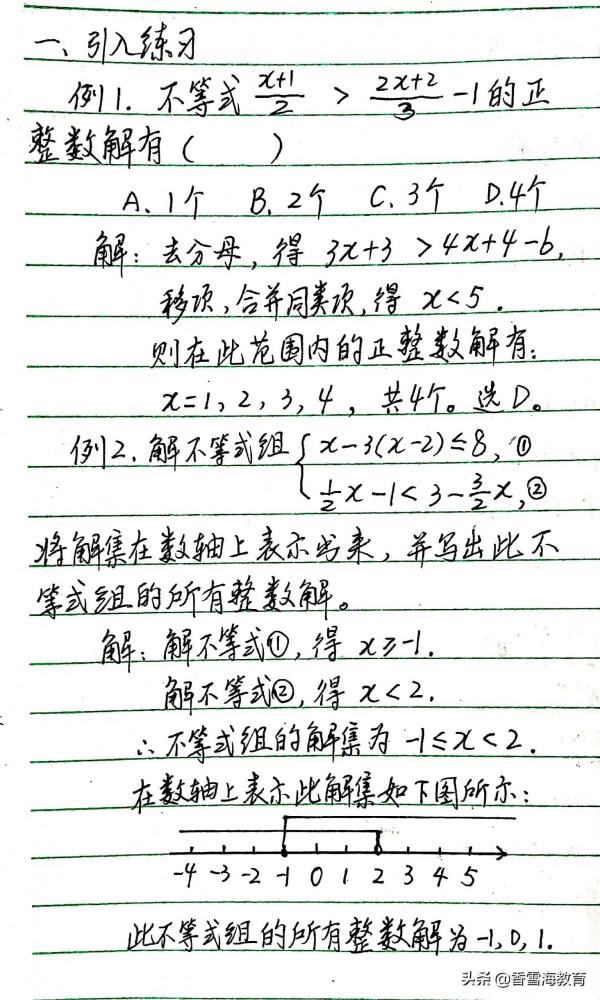 一、引入练习
例1. 不等式 (x+1)/2 > (2x+2)/3 -1 的正
整数解有（　　）
A、1个　B、2个　C、3个　D.4个
解：去分母，得 3x+3 >4x+4-6,
移项，合并同类项，得 x<5.
则在此范围内的正整数解有：
x=1，2，3，4，共4个。选D。
例2. 解不等式组 { x-3(x-2)≤8, ①
½x-1<3-3/2x, ②
将解集在数轴上表示出来，并写出此不
等式组的所有整数解。
解：解不等式①，得 x≥-1.
解不等式②，得 x<2.
∴不等式组的解集为 -1≤x<2.
在数轴上表示此解集如下图所示：
-4 -3 -2 -1 0 1 2 3 4 5
此不等式组的所有整数解为-1,0,1.
头条 @香雪海教育